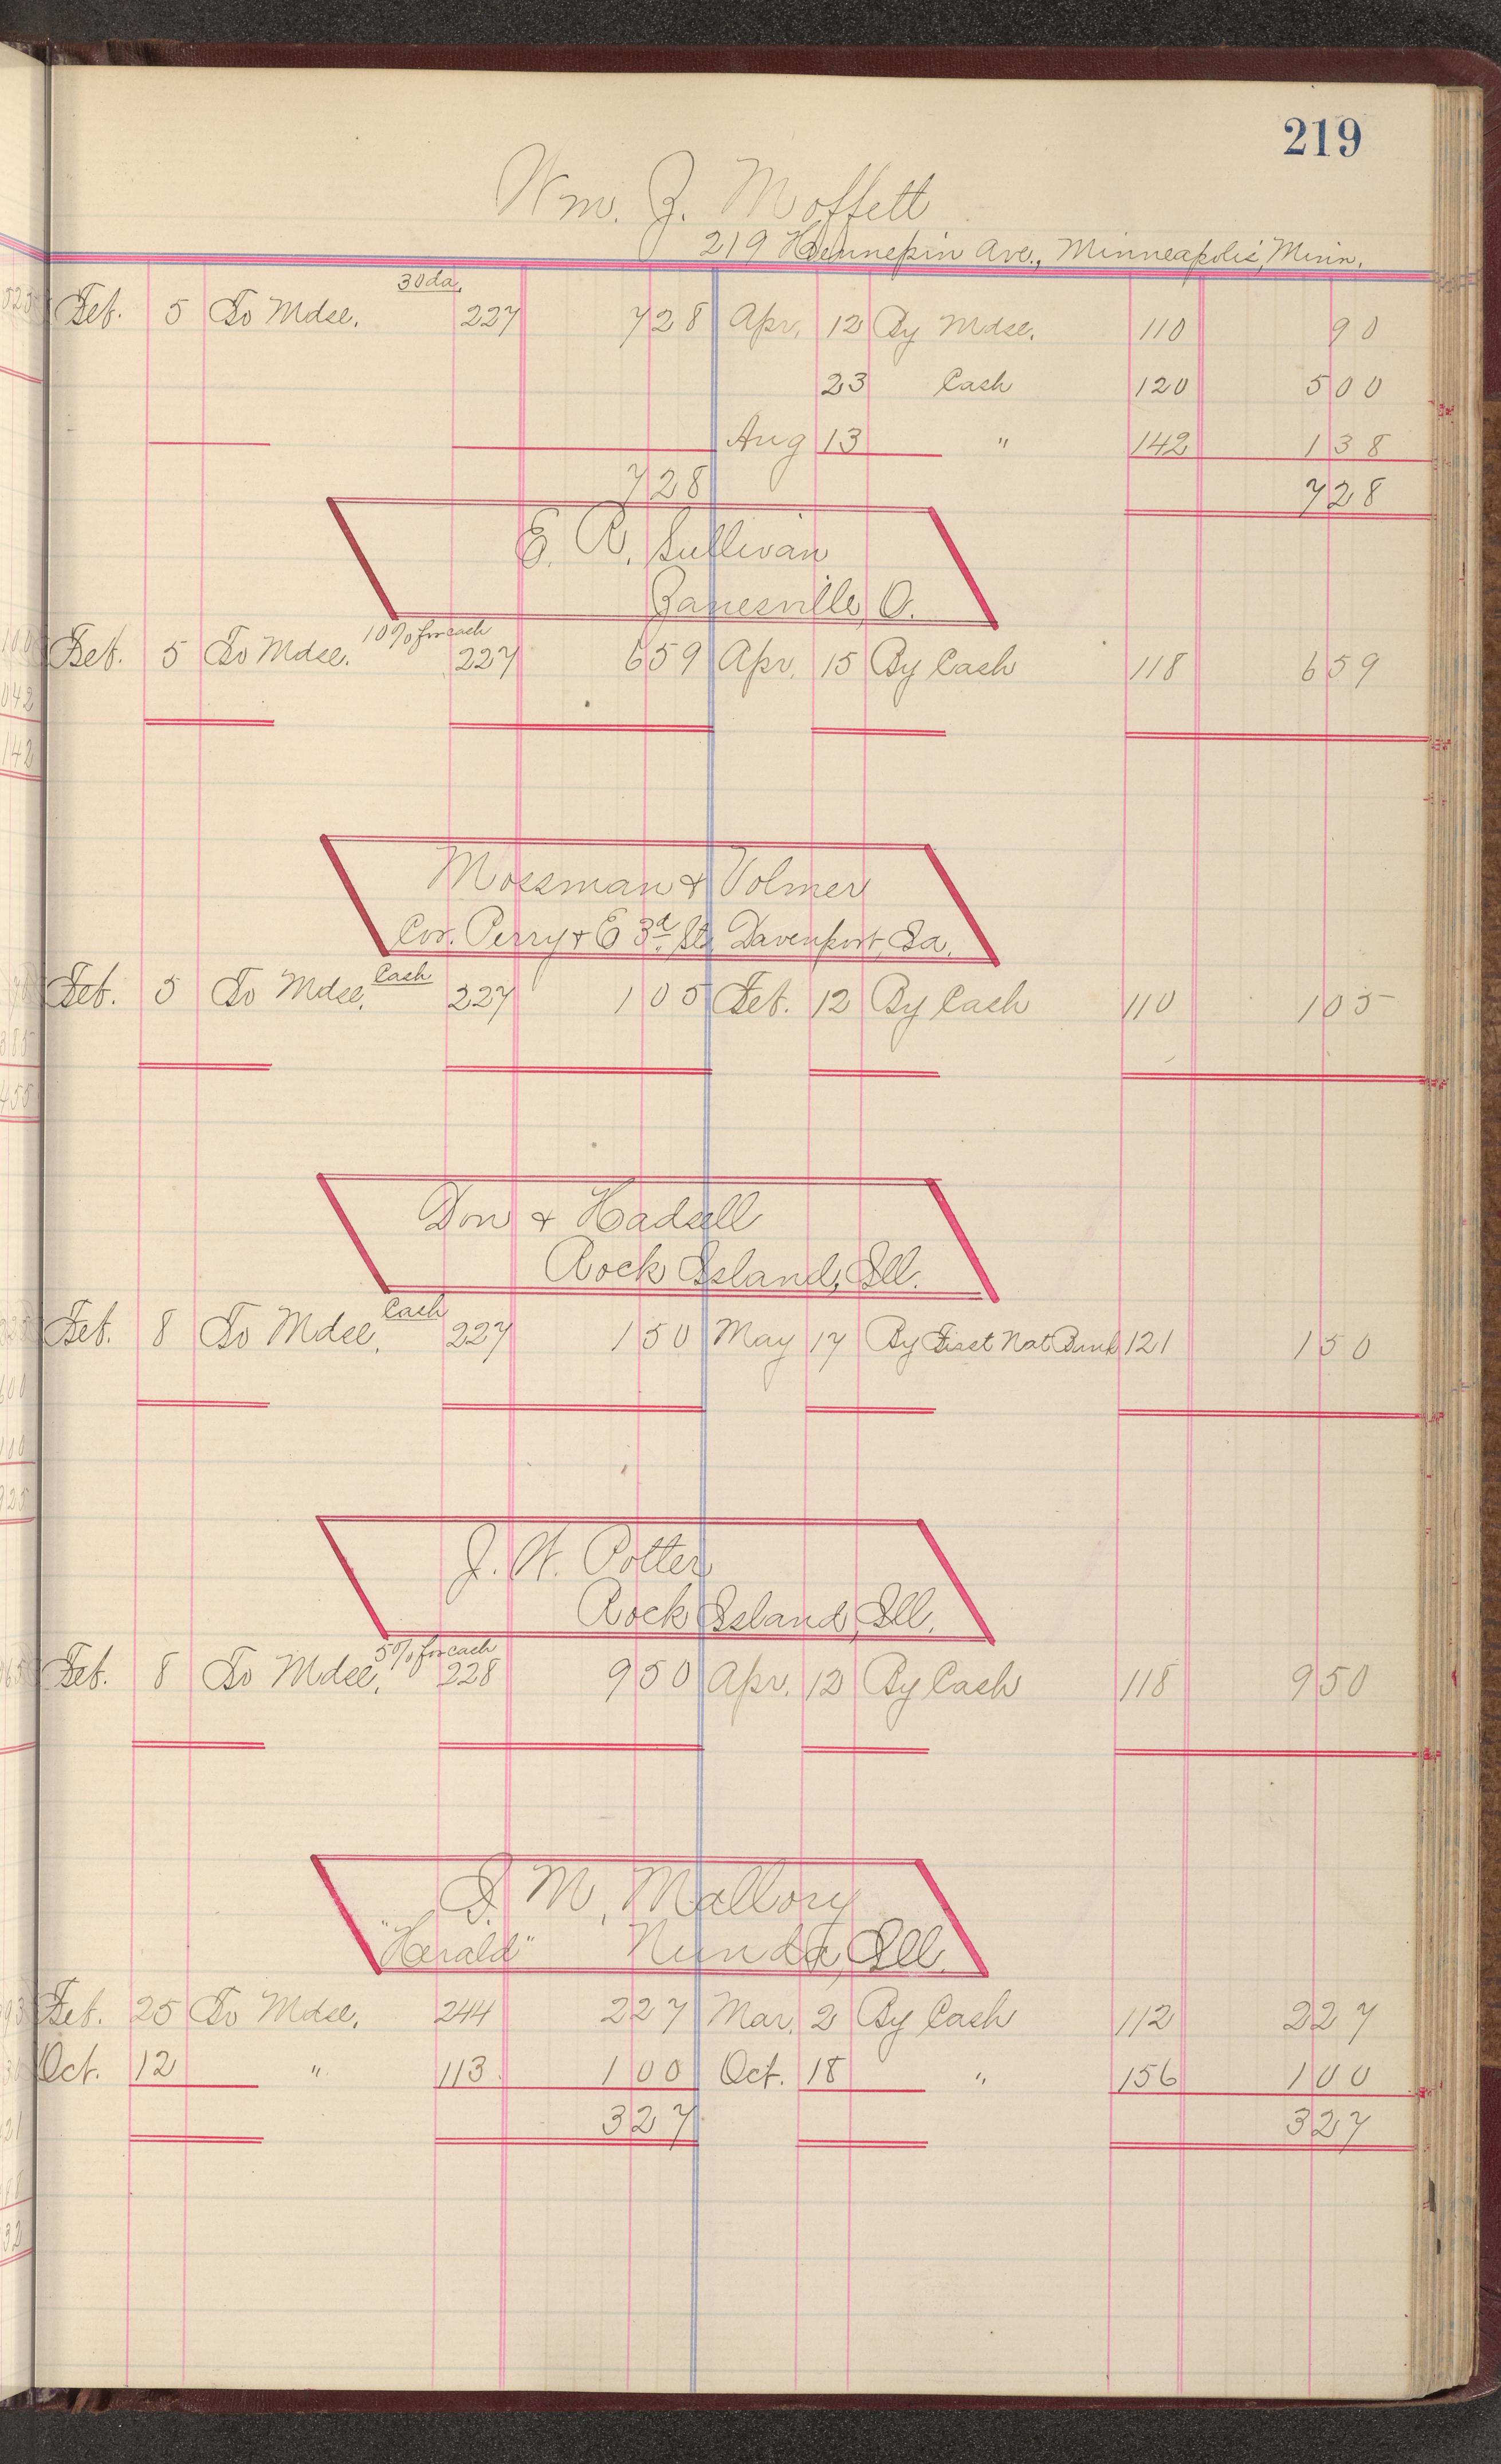 219
Wm. J. Moffett
219 Hennepin Ave., Minneapolis, Minn.
30da.
Feb. 5 To Mdse. 227 728 Apr. 12 By Mdse. 110 90
23 Cash 120 500
Aug 13 " 142 138
728 728
E. R. Sullivan
Zanesville, O.
10% for cash
Feb. 5 To Mdse. 227 659 Apr. 15 By Cash 118 659
Mossman & Volmer
Cor. Perry & E 3d. Sts. Davenport, Ia.
Cash
Feb. 5 To Mdse. 227 105 Feb. 12 By Cash 110 105
Don & Hadsell
Rock Island, Ill.
Cash
Feb. 8 To Mdse. 227 150 May 17 By First Nat Bank 121 150
J. W. Potter
Rock Island, Ill.
5% for cash
Feb. 8 To Mdse. 228 950 Apr. 12 By Cash 118 950
I. M. Mallory
"Herald" Nunda, Ill.
Feb. 25 To Mdse. 244 227 Mar. 2 By Cash 112 227
Oct. 12 " 113 100 Oct. 18 " 156 100
327 327